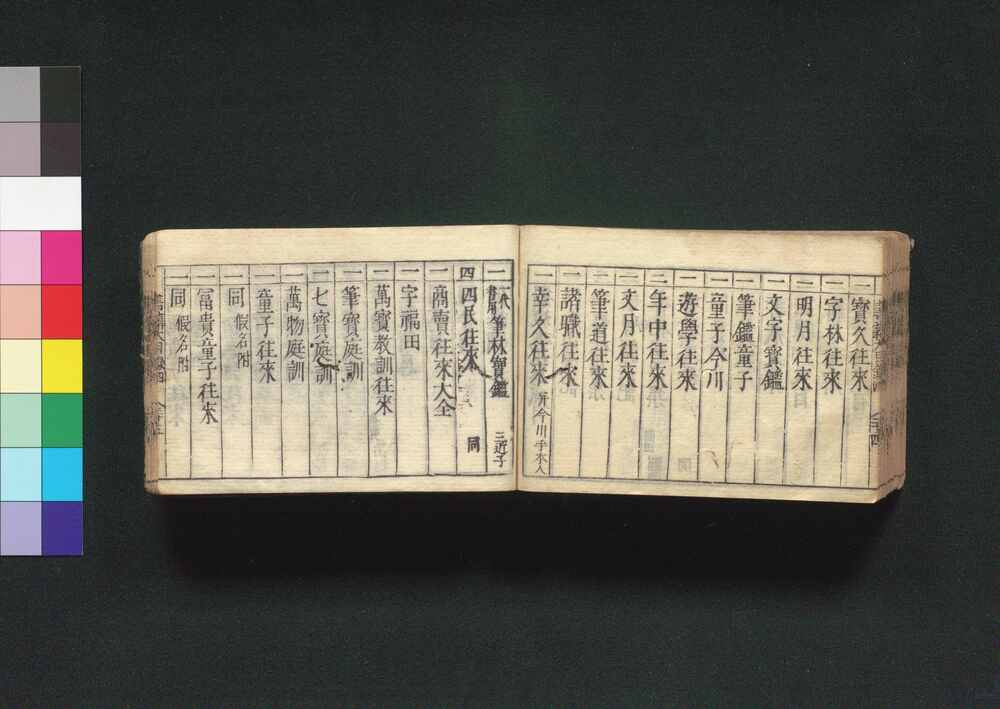 一 寶久往來
一 字林往來
一 明月往來
一 文字寶鑑
一 筆鑑童子
一 童子今川
一 遊學往來
二 年中往來
一 文月往來
一 筆道往來
一 諸職往來
一 幸久往來 并今川手本入
一 筆林寶鑑 三近子
四 四民往來 同
一 商賣往來大全
一 字福田
二 萬寶教訓往來
一 筆寶庭訓
一 七寶庭訓
二 萬物庭訓
一 童子往來
一 同 假名附
一 冨貴童子往來
一 同 假名附